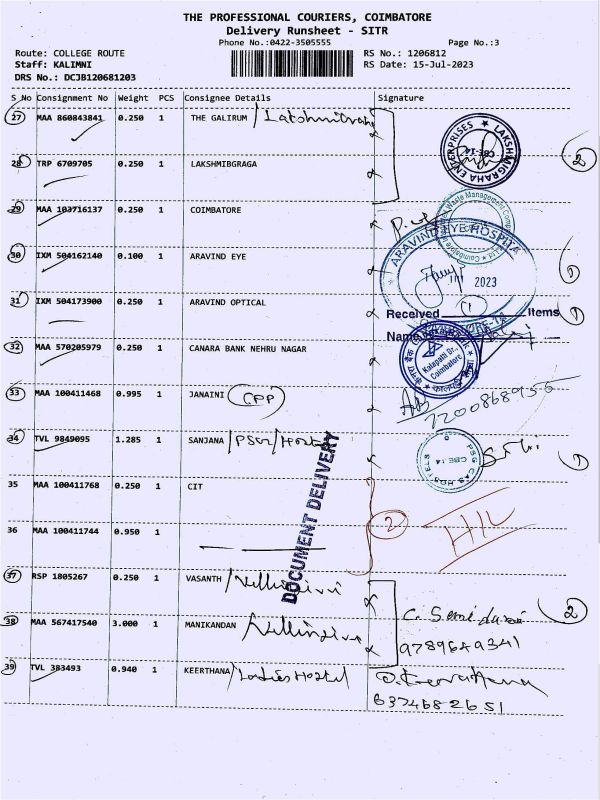 THE PROFESSIONAL COURIERS, COIMBATORE
Delivery Runsheet - SITR
Phone No.:0422-3505555 Page No.:3
Route: COLLEGE ROUTE RS No.: 1206812
Staff: KALIMNI RS Date: 15-Jul-2023
DRS No.: DCJB120681203
S No Consignment No Weight PCS Consignee Details Signature
27 MAA 860843841 0.250 1 THE GALIRUM
LAKSHMIGRAHA ENTERPRISES CBE-14
2
28 TRP 6709705 0.250 1 LAKSHMIBGRAGA
29 MAA 103716137 0.250 1 COIMBATORE
30 IXM 504162140 0.100 1 ARAVIND EYE
ARAVIND EYE HOSPITA
2023
1
31 IXM 504173900 0.250 1 ARAVIND OPTICAL
Received 1 Items
1
32 MAA 570205979 0.250 1 CANARA BANK NEHRU NAGAR
Kalapatti Br.,
Coimbatore
33 MAA 100411468 0.995 1 JANAINI CPP
34 TVL 9849095 1.285 1 SANJANA
PSG CAS HOSTELS CBE-14
1
35 MAA 100411768 0.250 1 CIT
DOCUMENT DELIVERY
36 MAA 100411744 0.950 1
2
37 RSP 1805267 0.250 1 VASANTH
2
38 MAA 567417540 3.000 1 MANIKANDAN
9789649341
39 TVL 383493 0.940 1 KEERTHANA / Ladies Hostel
6374682651